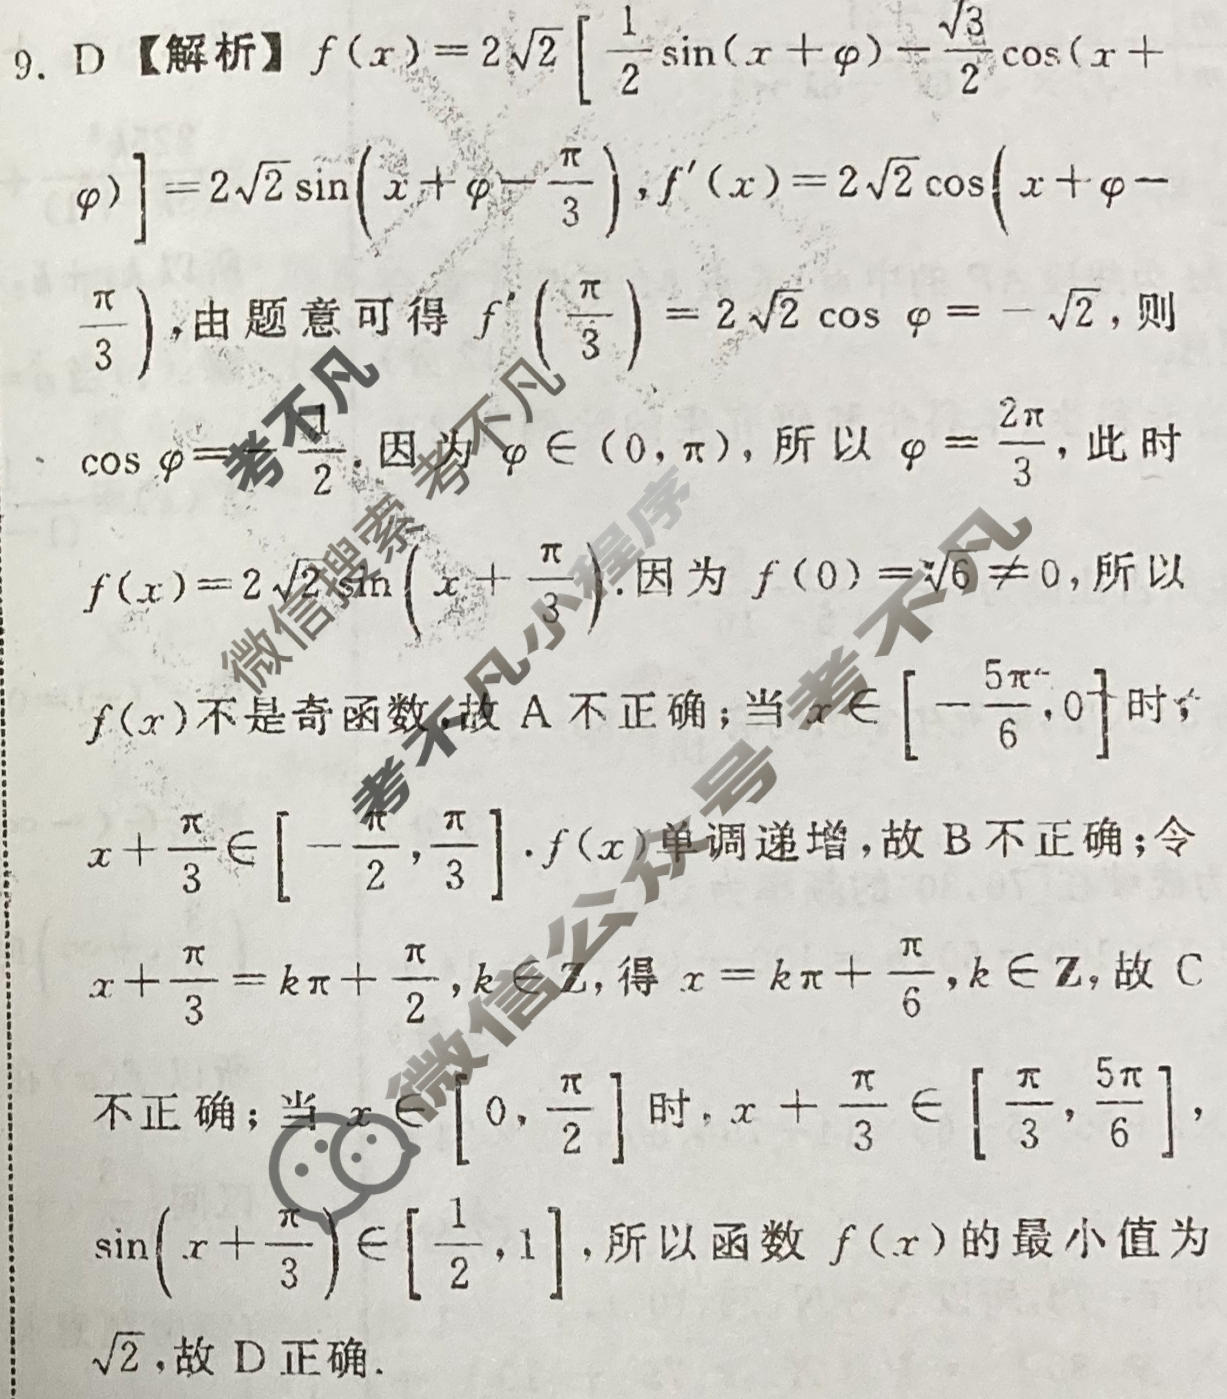 9. D 【解析】 f(x)=2√2[1/2 sin(x+φ)−√3/2 cos(x+
φ)]=2√2 sin(x+φ−π/3), f′(x)=2√2 cos(x+φ−
π/3),由题意可得 f′(π/3)=2√2 cos φ=−√2,则
cos φ=−1/2.因为 φ∈(0,π),所以 φ=2π/3,此时
f(x)=2√2 sin(x+π/3).因为 f(0)=√6≠0,所以
f(x)不是奇函数,故 A 不正确;当 x∈[−5π/6,0]时,
x+π/3∈[−π/2,π/3].f(x)单调递增,故 B 不正确;令
x+π/3=kπ+π/2,k∈Z,得 x=kπ+π/6,k∈Z,故 C
不正确;当 x∈[0,π/2]时,x+π/3∈[π/3,5π/6],
sin(x+π/3)∈[1/2,1],所以函数 f(x)的最小值为
√2,故 D 正确.
考不凡
微信搜索 考不凡
考不凡小程序
微信公众号 考不凡